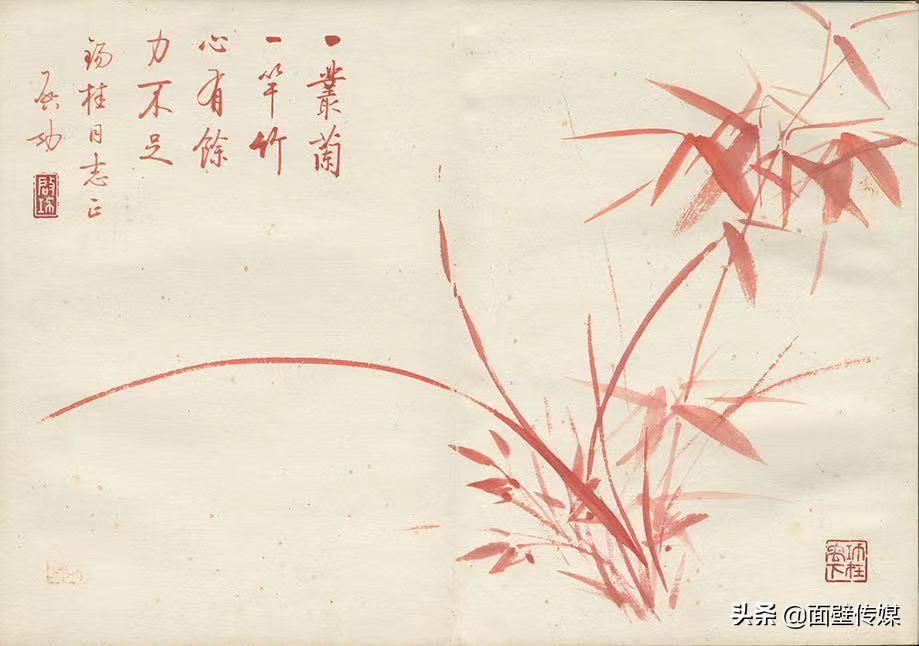 一叢蘭
一竿竹
心有餘
力不足
錫桂同志正
啟功
啟功
头条 @面壁传媒